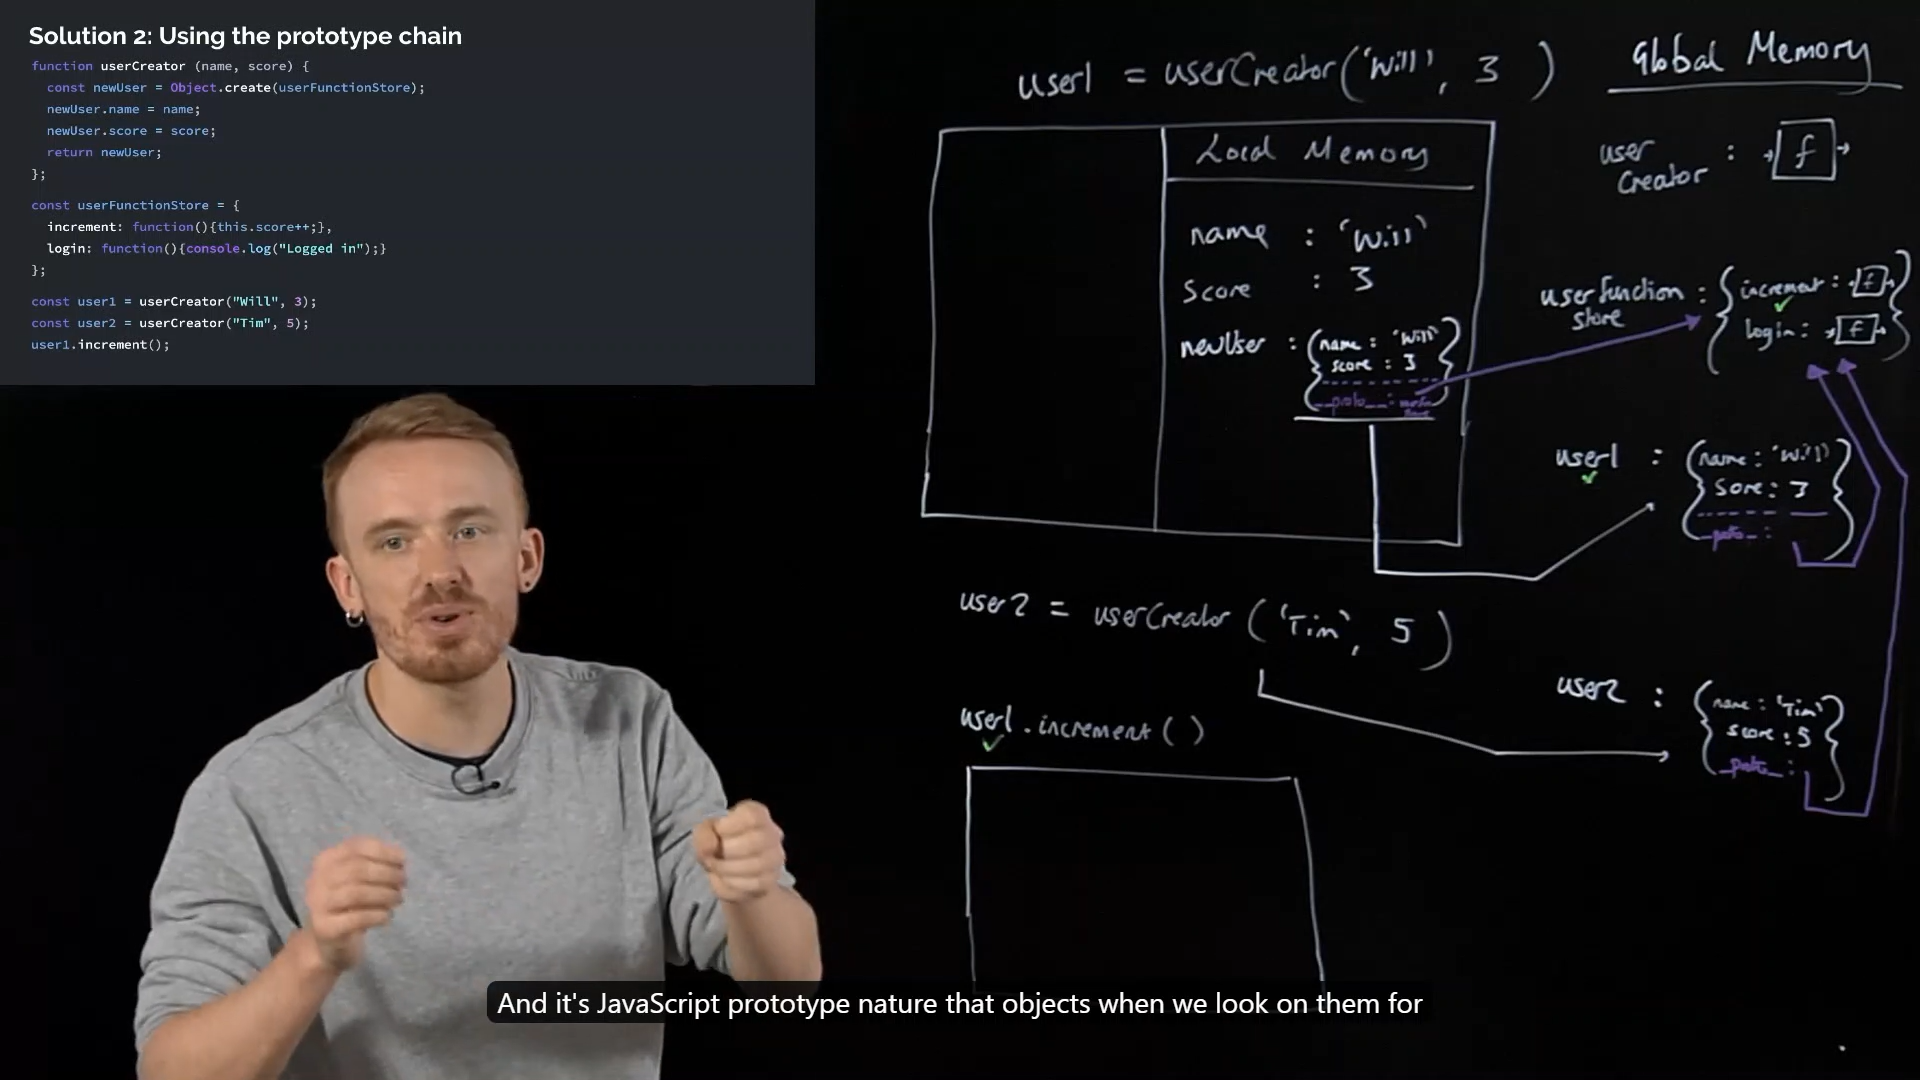 Solution 2: Using the prototype chain
function userCreator (name, score) {
const newUser = Object.create(userFunctionStore);
newUser.name = name;
newUser.score = score;
return newUser;
};
const userFunctionStore = {
increment: function(){this.score++;},
login: function(){console.log("Logged in");}
};
const user1 = userCreator("Will", 3);
const user2 = userCreator("Tim", 5);
user1.increment();
user1 = userCreator('Will', 3 )
Local Memory
name : 'Will'
Score : 3
newUser : { name : 'Will'
score : 3
__proto__ :
user2 = userCreator ('Tim', 5 )
user1.increment ( )
Global Memory
user
Creator : f
userfunction
store : { increment : f
login : f }
user1 : { name : 'Will'
Sore : 3
_proto_ : }
user2 : { name : 'Tim'
score : 5
_proto_ : }
And it's JavaScript prototype nature that objects when we look on them for